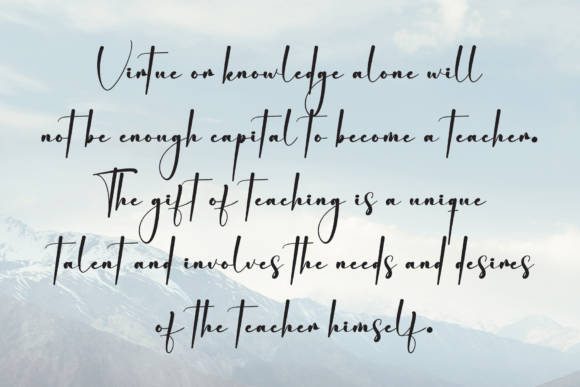 Virtue or knowledge alone will
not be enough capital to become a teacher.
The gift of teaching is a unique
talent and involves the needs and desires
of the teacher himself.